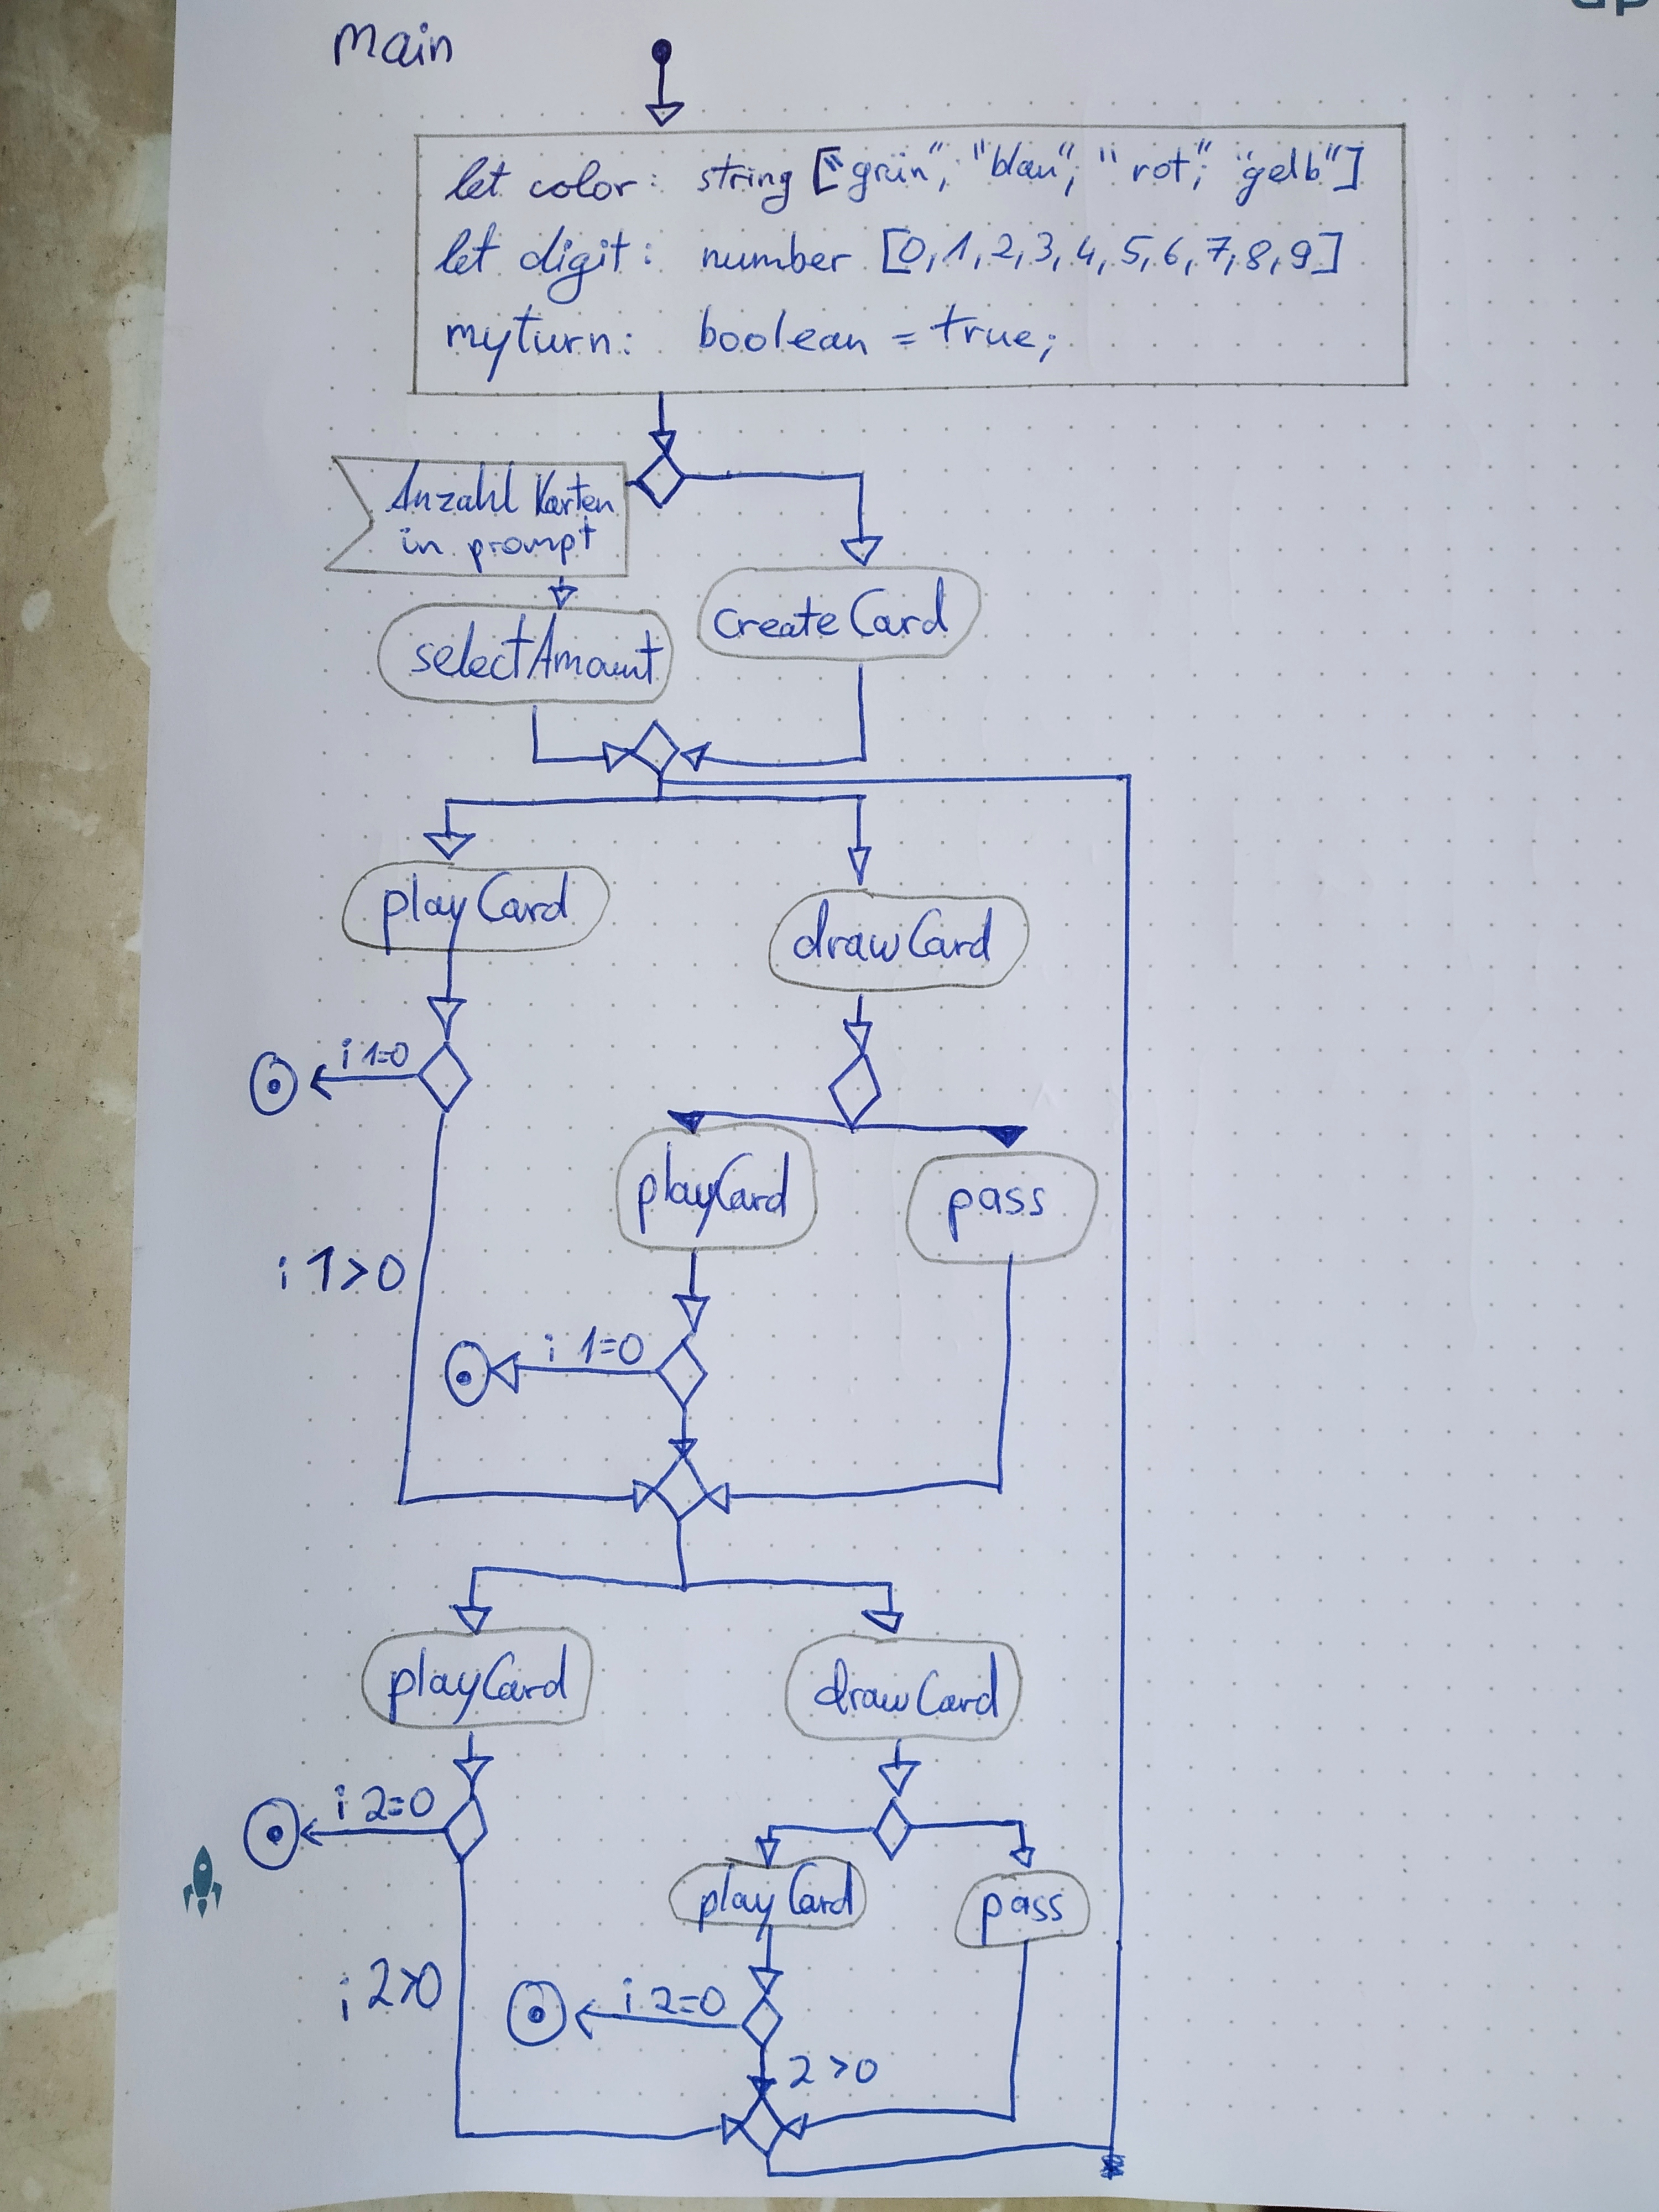 main
let color: string ["grün", "blau", "rot", "gelb"]
let digit: number [0,1,2,3,4,5,6,7,8,9]
myturn: boolean = true;
Anzahl Karten
in prompt
createCard
selectAmount
playCard
drawCard
i 1=0
playCard
pass
i 1>0
i 1=0
playCard
drawCard
i 2=0
playCard
pass
i 2>0
i 2=0
2>0